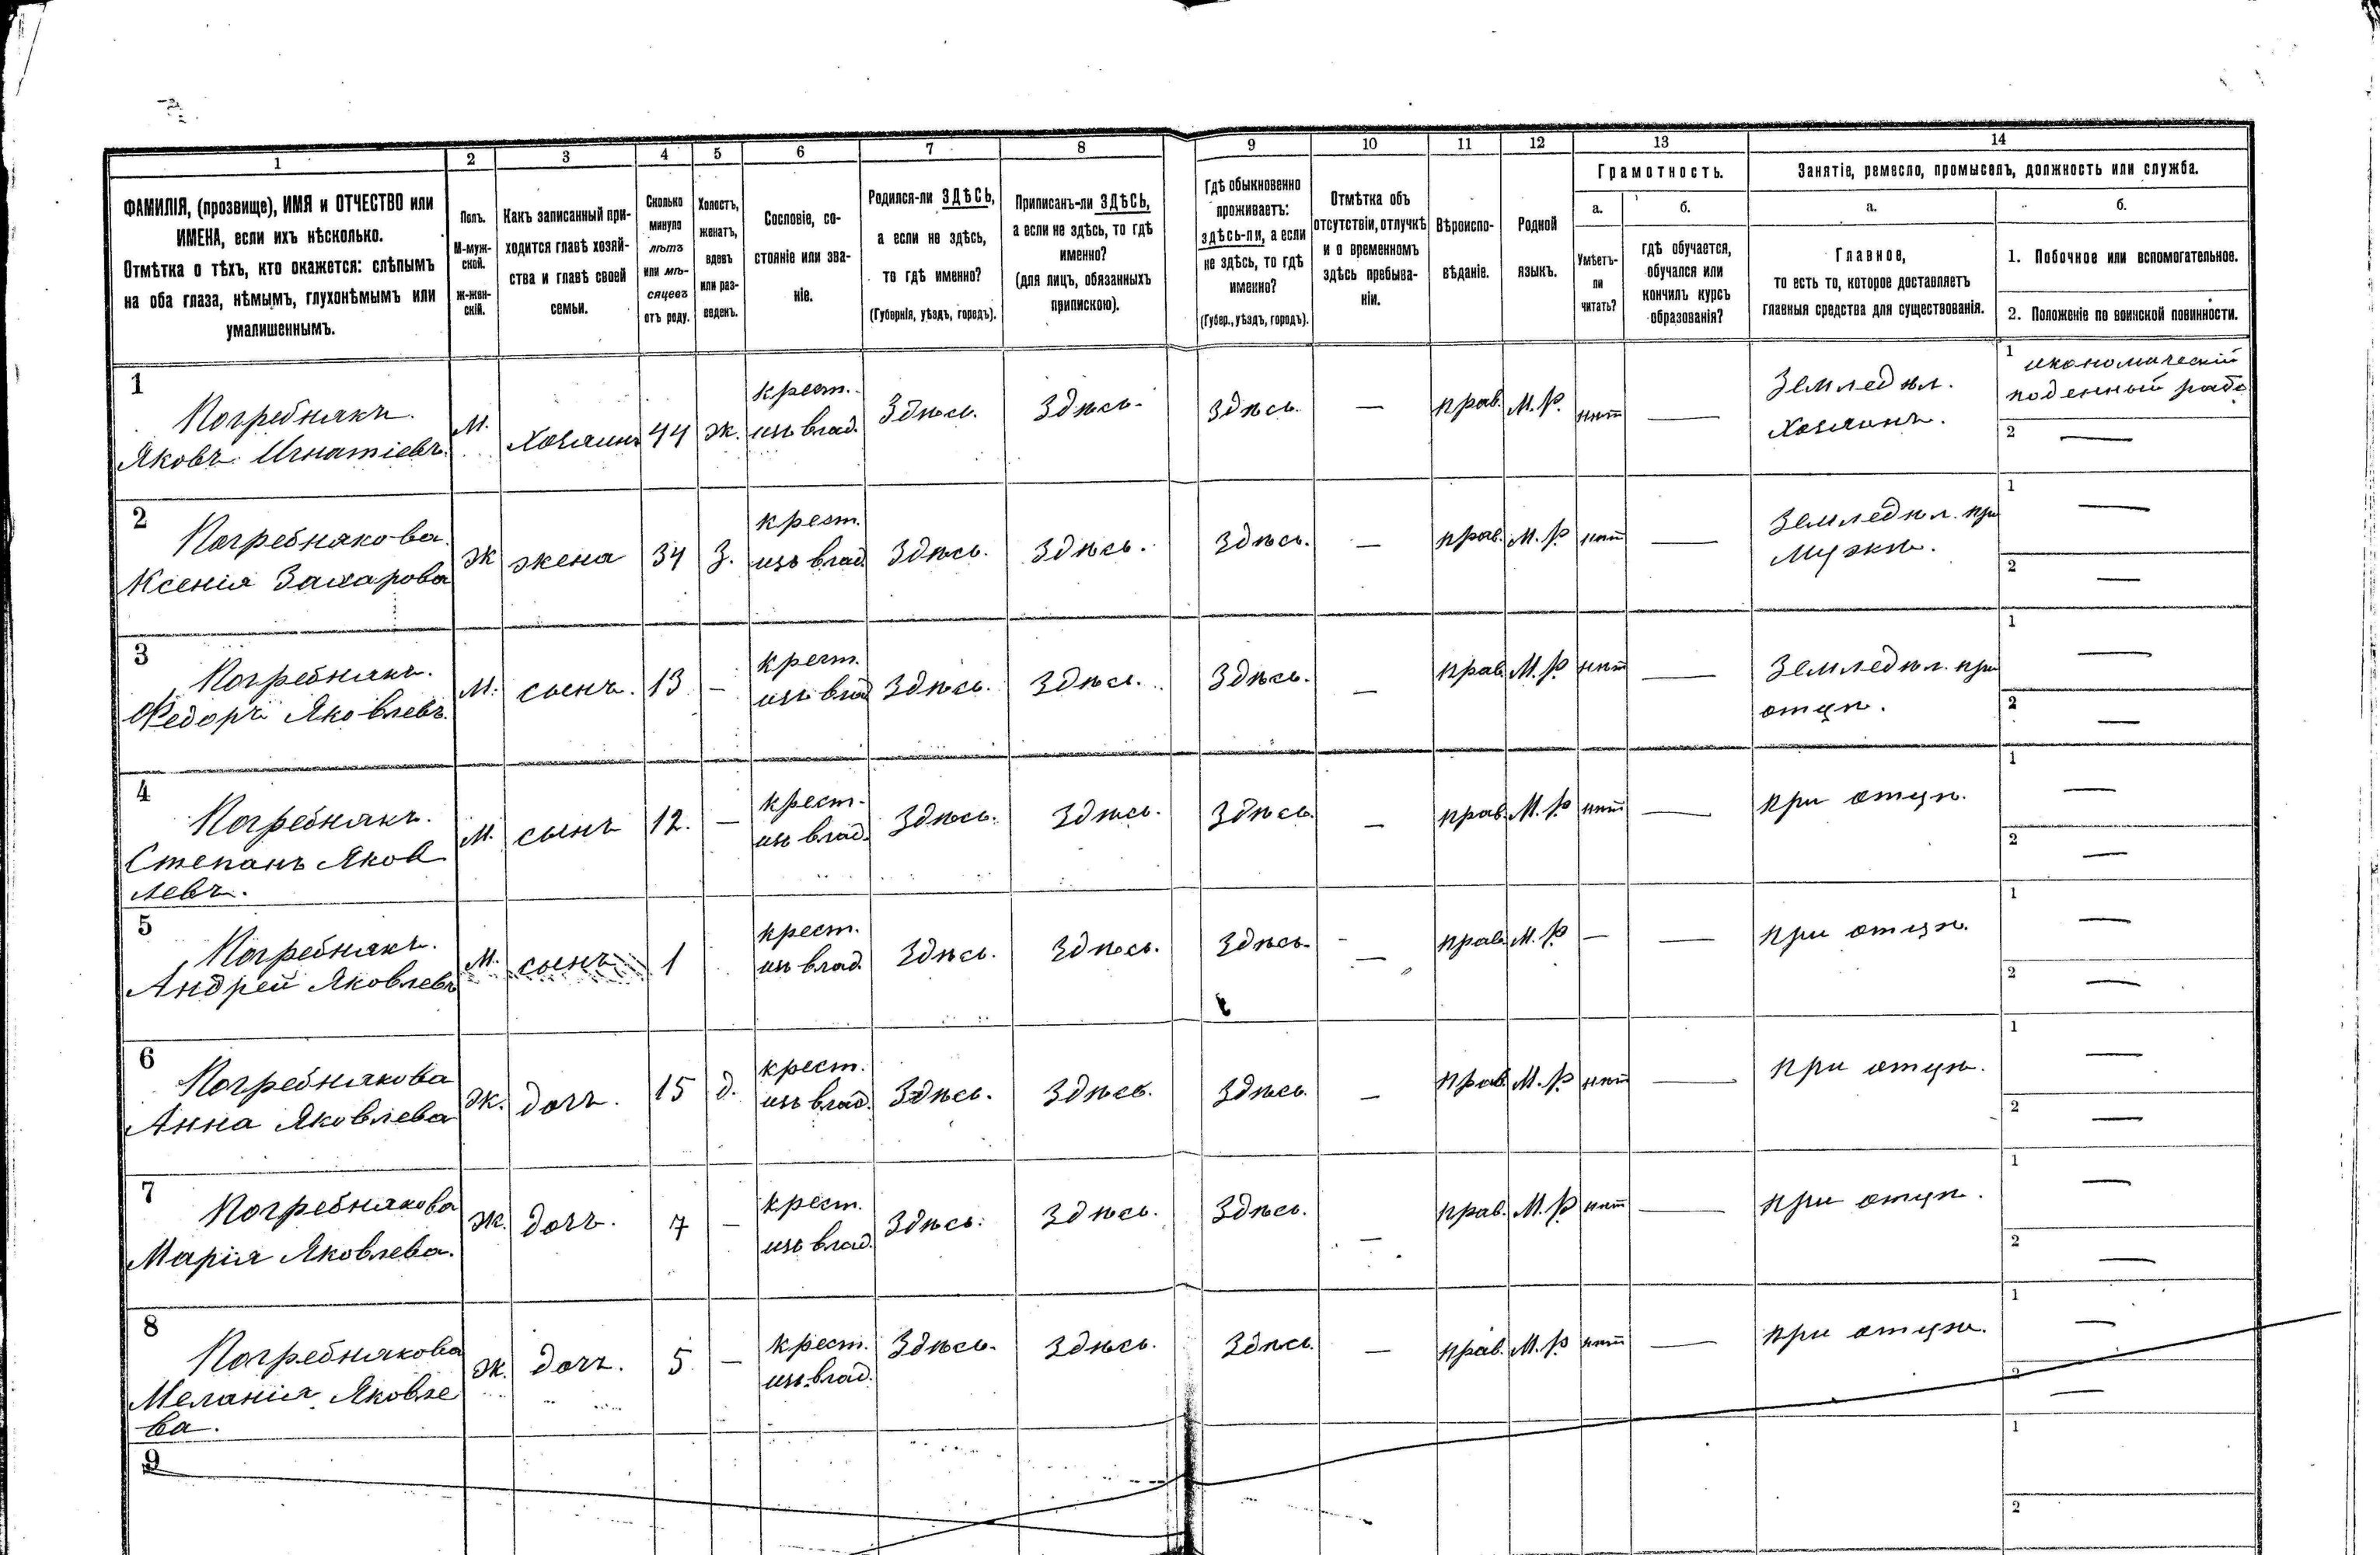 1 2 3 4 5 6 7 8 9 10 11 12 13 14
ФАМИЛІЯ, (прозвище), ИМЯ и ОТЧЕСТВО или
ИМЕНА, если ихъ нѣсколько.
Отмѣтка о тѣхъ, кто окажется: слѣпымъ
на оба глаза, нѣмымъ, глухонѣмымъ или
умалишеннымъ.
Полъ.
М-муж-
ской.
Ж-жен-
скій.
Какъ записанный при-
ходится главѣ хозяй-
ства и главѣ своей
семьи.
Сколько
минуло
лѣтъ
или мѣ-
сяцевъ
отъ роду.
Холостъ,
женатъ,
вдовъ
или раз-
веденъ.
Сословіе, со-
стояніе или зва-
ніе.
Родился-ли ЗДѢСЬ,
а если не здѣсь,
то гдѣ именно?
(Губернія, уѣздъ, городъ).
Приписанъ-ли ЗДѢСЬ,
а если не здѣсь, то гдѣ
именно?
(для лицъ, обязанныхъ
припискою).
Гдѣ обыкновенно
проживаетъ:
здѣсь-ли, а если
не здѣсь, то гдѣ
именно?
(Губер., уѣздъ, городъ).
Отмѣтка объ
отсутствіи, отлучкѣ
и о временномъ
здѣсь пребыва-
ніи.
Вѣроиспо-
вѣданіе.
Родной
языкъ.
Грамотность.
а.
Умѣетъ-
ли
читать?
б.
гдѣ обучается,
обучался или
кончилъ курсъ
образованія?
Занятіе, ремесло, промыселъ, должность или служба.
а.
Главное,
то есть то, которое доставляетъ
главныя средства для существованія.
б.
1. Побочное или вспомогательное.
2. Положеніе по воинской повинности.
1
Погребнякъ.
Яковъ Игнатіевъ.
М.
Хозяинъ
44
ж.
крест.
изъ влад.
Здѣсь.
Здѣсь.
Здѣсь.
—
прав.
М. Р.
нѣт
—
Земледѣл.
Хозяинъ.
1
икономическій
поденный рабо
2 —
2
Погребнякова.
Ксенія Захарова
ж
жена
34
З.
крест.
изъ влад.
Здѣсь.
Здѣсь.
Здѣсь.
—
прав.
М. Р.
нѣт
—
Земледѣл. при
мужѣ.
1 —
2 —
3
Погребнякъ.
Федоръ Яковлевъ.
М.
сынъ.
13
—
крест.
изъ влад
Здѣсь.
Здѣсь.
Здѣсь.
—
прав.
М. Р.
нѣт
—
Земледѣл. при
отцѣ.
1 —
2 —
4
Погребнякъ.
Степанъ Яков
левъ.
М.
сынъ
12.
—
крест.
изъ влад.
Здѣсь.
Здѣсь.
Здѣсь.
—
прав.
М. Р.
нѣт
—
при отцѣ.
1 —
2 —
5
Погребнякъ.
Андрей Яковлевъ
М.
сынъ
1
крест.
изъ влад.
Здѣсь.
Здѣсь.
Здѣсь.
—
прав.
М. Р.
—
—
при отцѣ.
1 —
2 —
6
Погребнякова
Анна Яковлева
ж.
дочь.
15
д.
крест.
изъ влад.
Здѣсь.
Здѣсь.
Здѣсь.
—
прав.
М. Р.
нѣт
—
при отцѣ.
1 —
2 —
7
Погребнякова
Марія Яковлева.
ж.
дочь.
7
—
крест.
изъ влад.
Здѣсь.
Здѣсь.
Здѣсь.
—
прав.
М. Р.
нѣт
—
при отцѣ.
1 —
2 —
8
Погребнякова
Меланія Яковле
ва.
ж.
дочь.
5
—
крест.
изъ влад.
Здѣсь.
Здѣсь.
Здѣсь.
—
прав.
М. Р.
нѣт
—
при отцѣ.
1 —
2 —
9
1
2